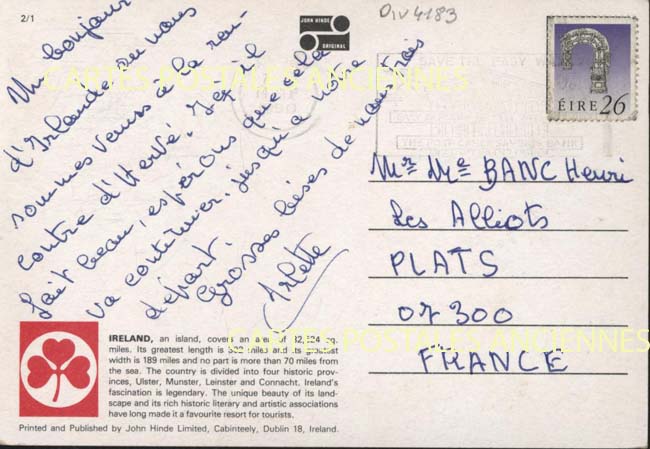 2/1
JOHN HINDE
ORIGINAL
Div 4183
ÉIRE 26
Un bonjour
d'Irlande où nous
sommes venus à la ren-
contre d'Hervé. Ici il
fait beau, espérons que cela
va continuer jusqu'à notre
départ.
Grosses bises de nous trois
Arlette
Mr Me BANC Henri
Les Alliots
PLATS
07300
FRANCE
CARTES POSTALES ANCIENNES
CARTES POSTALES ANCIENNES
IRELAND, an island, covers an area of 32,524 sq.
miles. Its greatest length is 302 miles and its greatest
width is 189 miles and no part is more than 70 miles from
the sea. The country is divided into four historic prov-
inces, Ulster, Munster, Leinster and Connacht. Ireland's
fascination is legendary. The unique beauty of its land-
scape and its rich historic literary and artistic associations
have long made it a favourite resort for tourists.
Printed and Published by John Hinde Limited, Cabinteely, Dublin 18, Ireland.